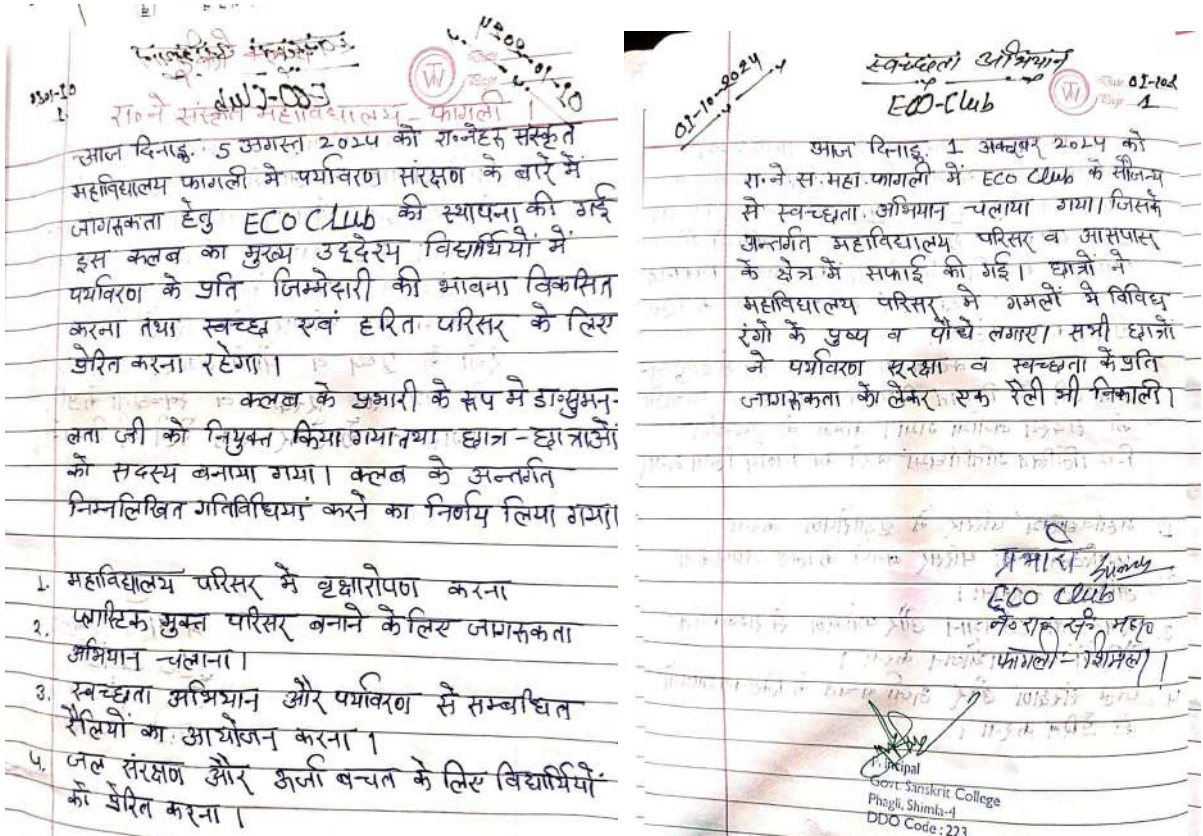 रा०ने संस्कृत महाविद्यालय - फागली ।
आज दिनाङ्क. 5 अगस्त 2024 को रा०नेहरू संस्कृत
महाविद्यालय फागली मे पर्यावरण संरक्षण के बारे में
जागरुकता हेतु ECO Club की स्थापना की गई
इस कलब का मुख्य उद्देश्य विद्यार्थियों में
पर्यावरण के प्रति जिम्मेदारी की भावना विकसित
करना तथा स्वच्छ एवं हरित परिसर के लिए
प्रेरित करना रहेगा।
क्लब के प्रभारी के रूप मे डा॰सुमन-
लता जी को नियुक्त किया गया तथा छात्र-छात्राओं
को सदस्य बनाया गया। क्लब के अन्तर्गत
निम्नलिखित गतिविधियां करने का निर्णय लिया गया।
1. महाविद्यालय परिसर मे वृक्षारोपण करना
2. प्लास्टिक मुक्त परिसर बनाने के लिए जागरुकता
अभियान चलाना।
3. स्वच्छता अभियान और पर्यावरण से सम्बधित
रैलियों का आयोजन करना ।
4. जल संरक्षण और ऊर्जा बचत के लिए विद्यार्थियों
को प्रेरित करना ।
स्वच्छता अभियान
ECO-Club
01-10-2024
1
आज दिनाङ्क. 1 अक्टूबर 2024 को
रा०ने.स.महा.फागली में ECO Club के सौजन्य
से स्वच्छता अभियान चलाया गया। जिसके
अन्तर्गत महाविद्यालय परिसर व आसपास
के क्षेत्र में सफाई की गई। छात्रों ने
महाविद्यालय परिसर मे गमलों मे विविध
रंगों के पुष्प व पौधे लगाए। सभी छात्रों
ने पर्यावरण सुरक्षा व स्वच्छता के प्रति
जागरुकता को लेकर एक रैली भी निकाली।
प्रभारी
ECO Club
ने०रा० सं० महा०
फागली - शिमला ।
Principal
Govt. Sanskrit College
Phagli, Shimla-4
DDO Code : 223